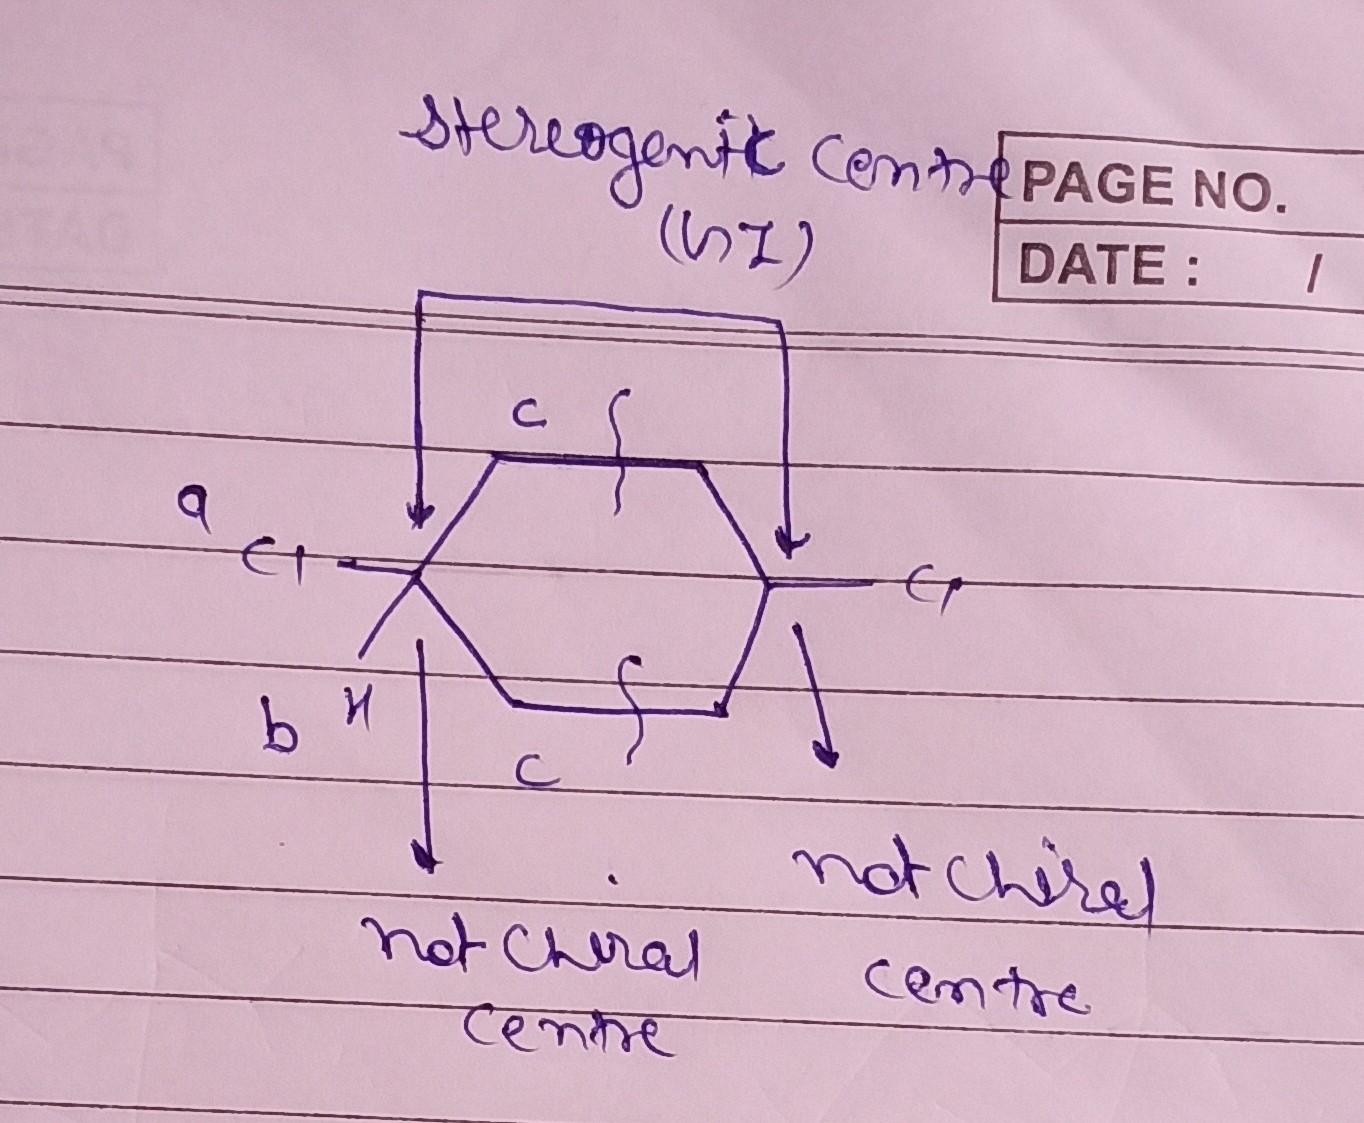 stereogenic centre
(GI)
PAGE NO.
DATE : /
C
a
Cl
Cl
b H
C
not chiral
centre
not chiral
centre